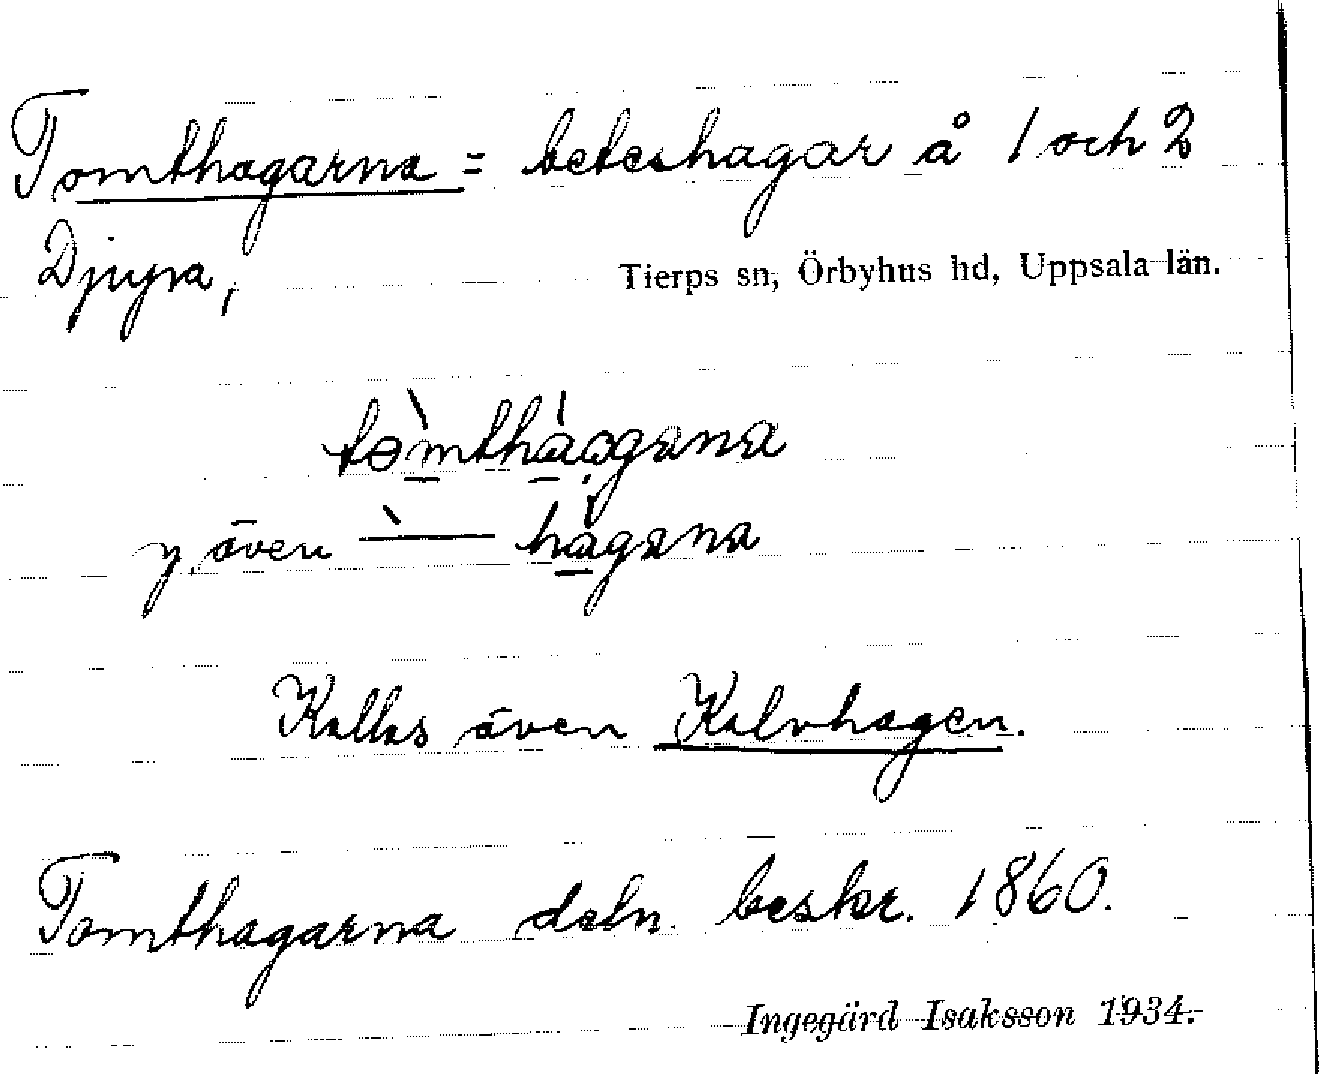 Tomthagarna = beteshagar å 1 och 2
Djupa,
Tierps sn, Örbyhus hd, Uppsala län.
tòmthàogana
y. även — hágana
Kallas även Kalvhagen.
Tomthagarna deln. beskr. 1860.
Ingegärd Isaksson 1934.